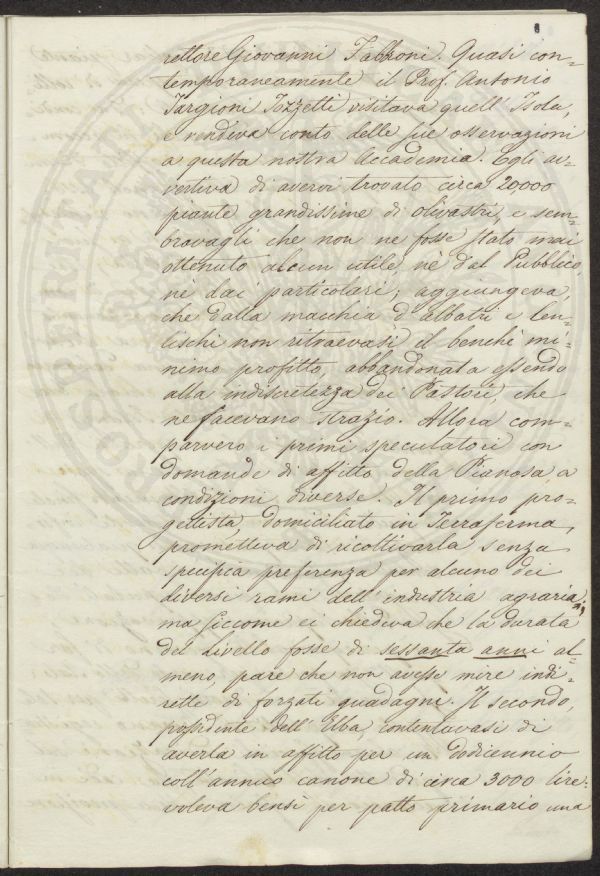 rettore Giovanni Fabbroni. Quasi con=
temporaneamente il Prof. Antonio
Targioni Tozzetti visitava quell'Isola,
e rendeva conto delle sue osservazioni
a questa nostra Accademia. Egli av=
vertiva di avervi trovato circa 20,000
piante grandissime di olivastri, e sem=
bravagli che non ne fosse stato mai
ottenuto alcun utile, nè dal Pubblico,
nè dai particolari; aggiungeva,
che dalla macchia d'Albatri e Len=
tischi non ritraevasi il benchè mi=
nimo profitto, abbandonata essendo
alla indiscretezza dei Pastori, che
ne facevano strazio. Allora com=
parvero i primi speculatori con
domande di affitto della Pianosa a
condizioni diverse. Il primo pro=
gettista, domiciliato in Terraferma,
prometteva di ricoltivarla senza
specifica preferenza per alcuno dei
diversi rami dell'industria agraria;
ma siccome ei chiedeva che la durata
del livello fosse di sessanta anni al=
meno, pare che non avesse mire indi=
rette di forzati guadagni. Il secondo,
possidente dell'Elba, contentavasi di
averla in affitto per un dodicennio
coll'annuo canone di circa 3000 lire:
voleva bensì per patto primario una
PROSPERITATI